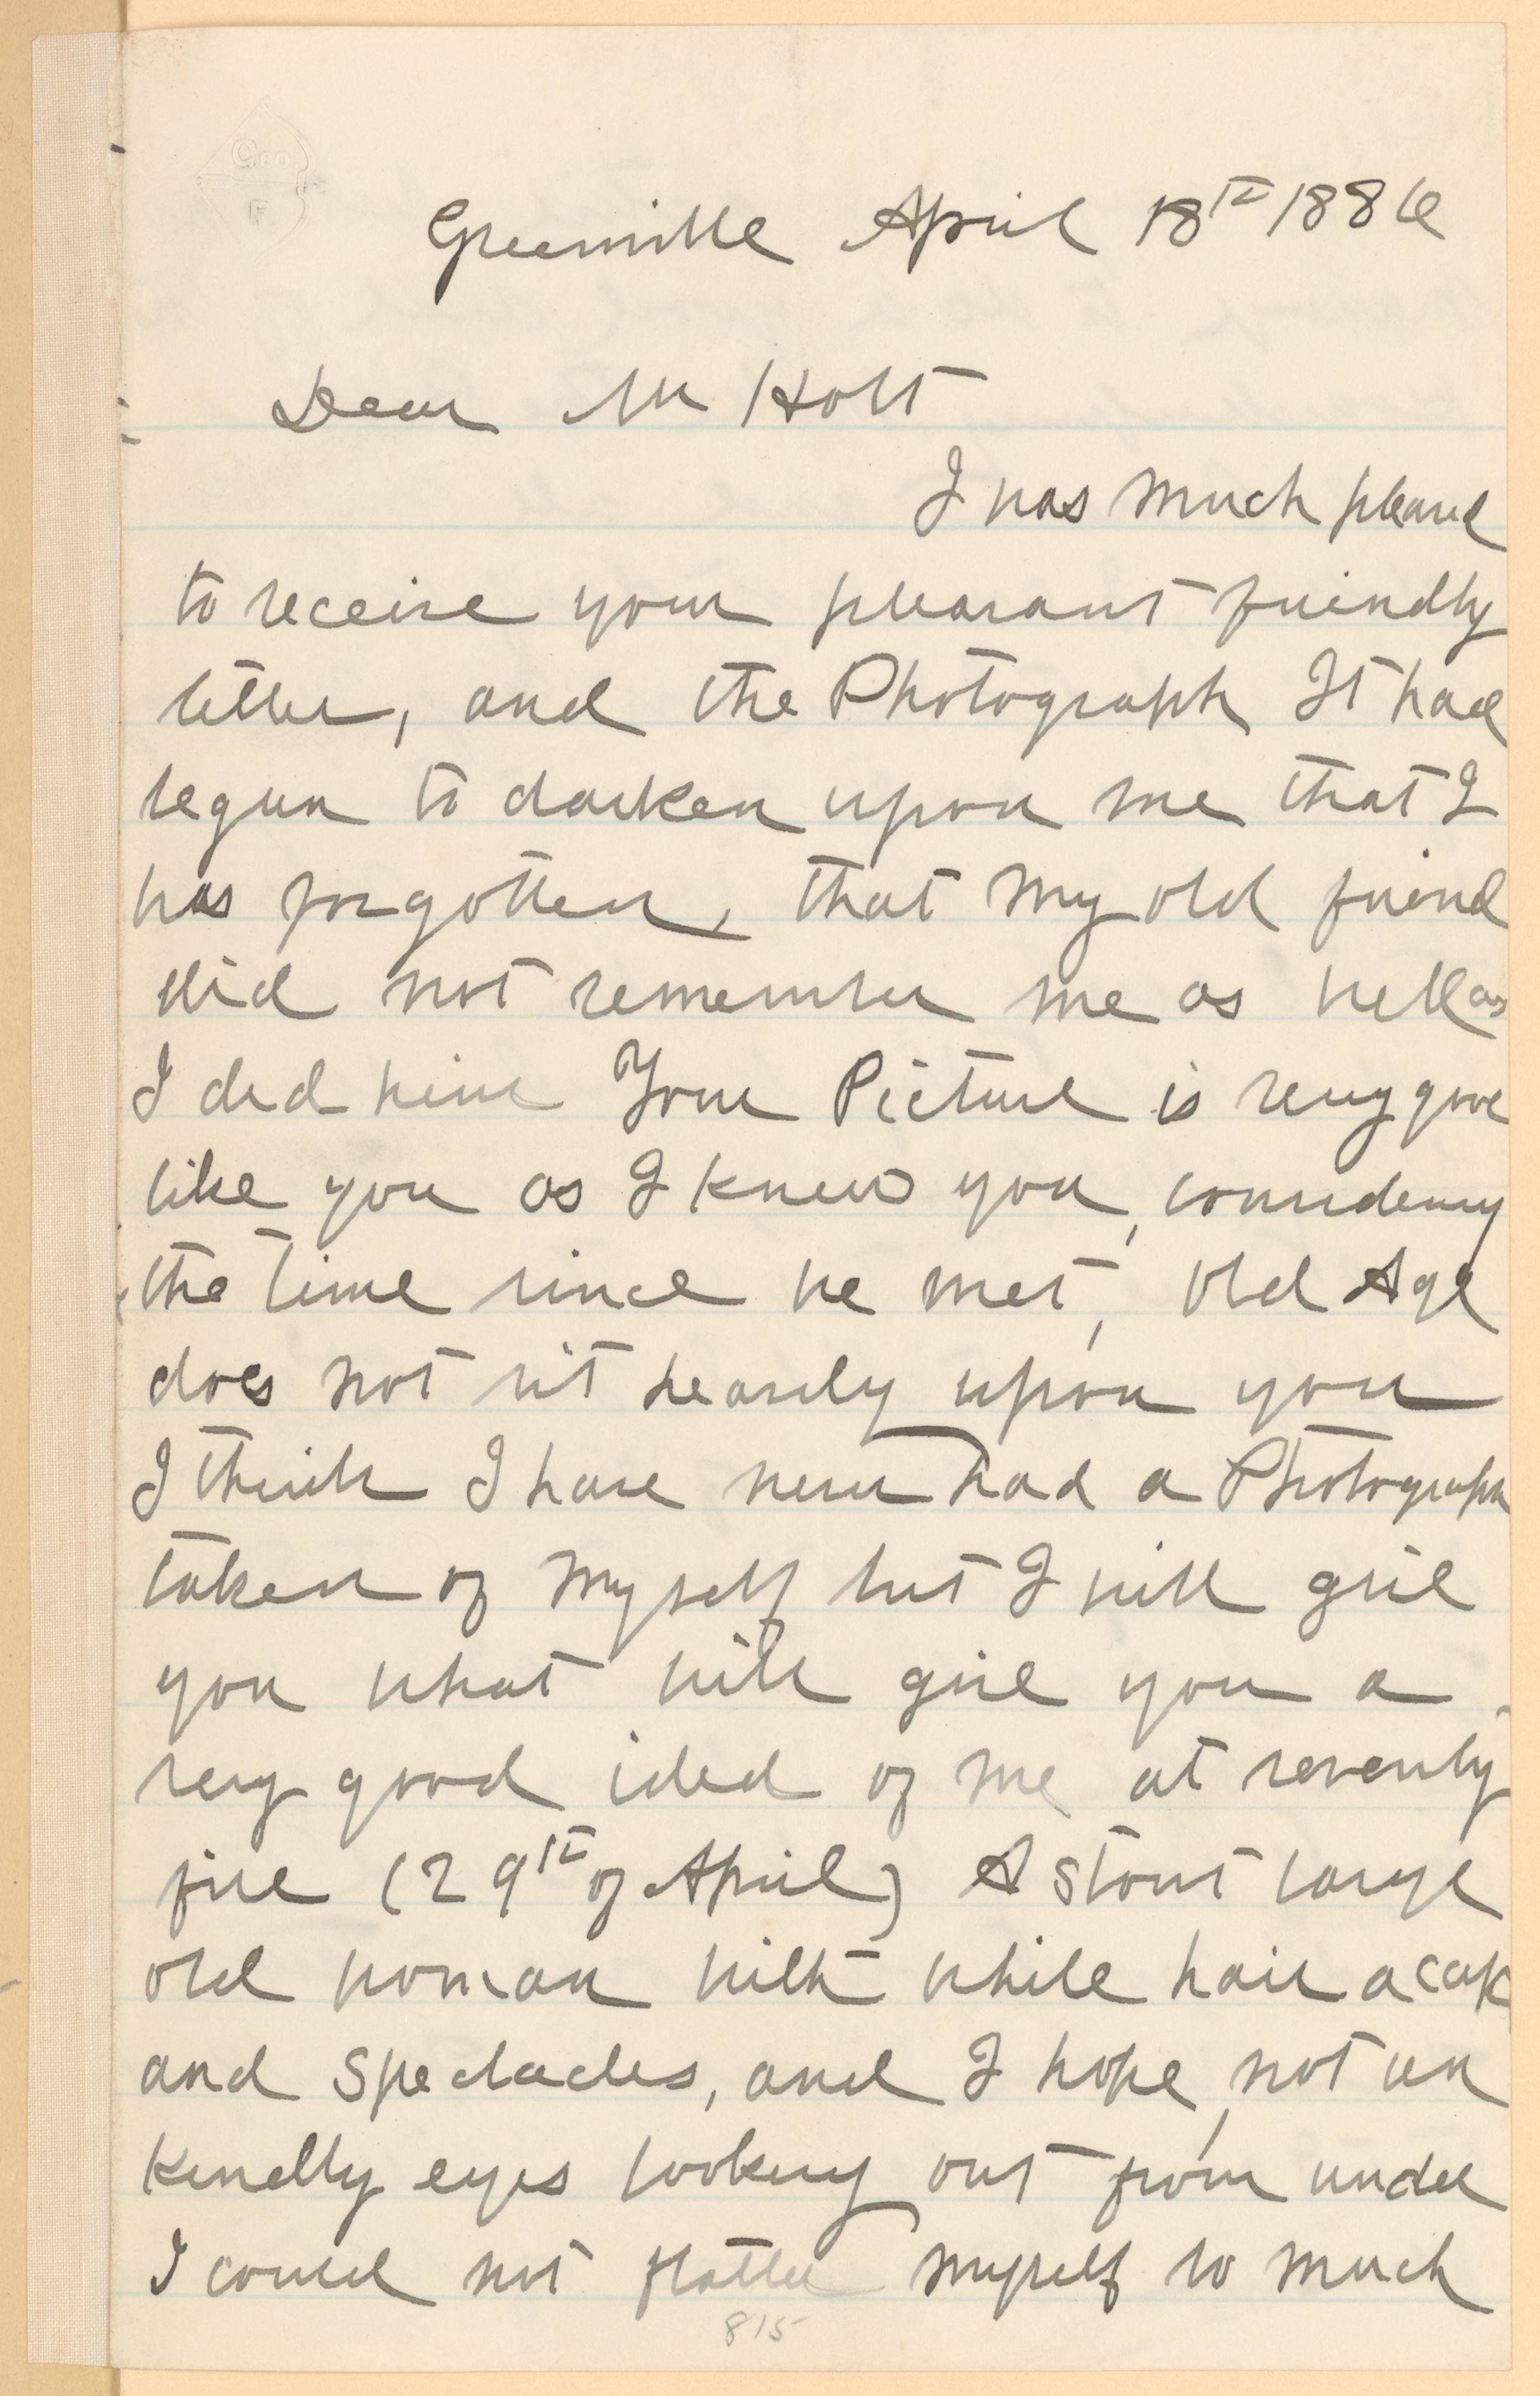 GEO
F
Greenville April 18th 1886
Dear Mr Holt
I was much pleased
to receive your pleasant friendly
letter, and the Photograph It had
begun to darken upon me that I
was forgotten, that my old friend
did not remember me as well as
I did him Your Picture is very good
like you as I knew you, considering
the time since we met, Old Age
does not sit heavily upon you
I think I have never had a Photograph
taken of myself but I will give
you what will give you a
very good idea of me at seventy
five (29th of April) A stout large
old woman with white hair a cap
and Spectacles, and I hope, not un
kindly eyes looking out from under
I could not flatter myself so much
815